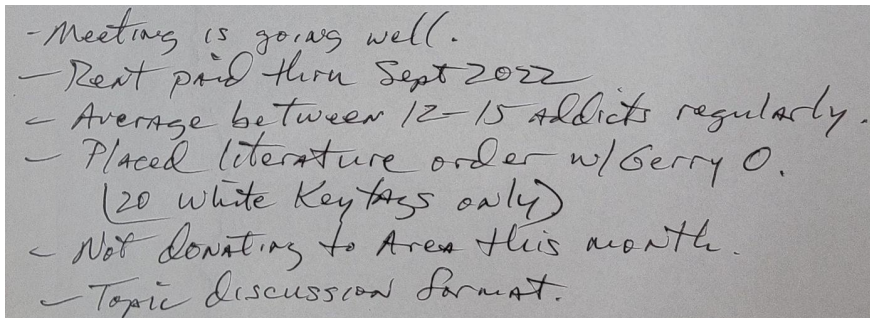 - Meeting is going well.
- Rent paid thru Sept 2022
- Average between 12-15 addicts regularly.
- Placed literature order w/ Gerry O.
(20 white Key tags only)
- Not donating to Area this month.
- Topic discussion format.